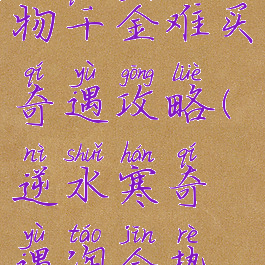 物千金难买
qí yù gōng lüè
奇遇攻略(
nì shuǐ hán qí
逆水寒奇
yù táo jīn rè
遇淘金热